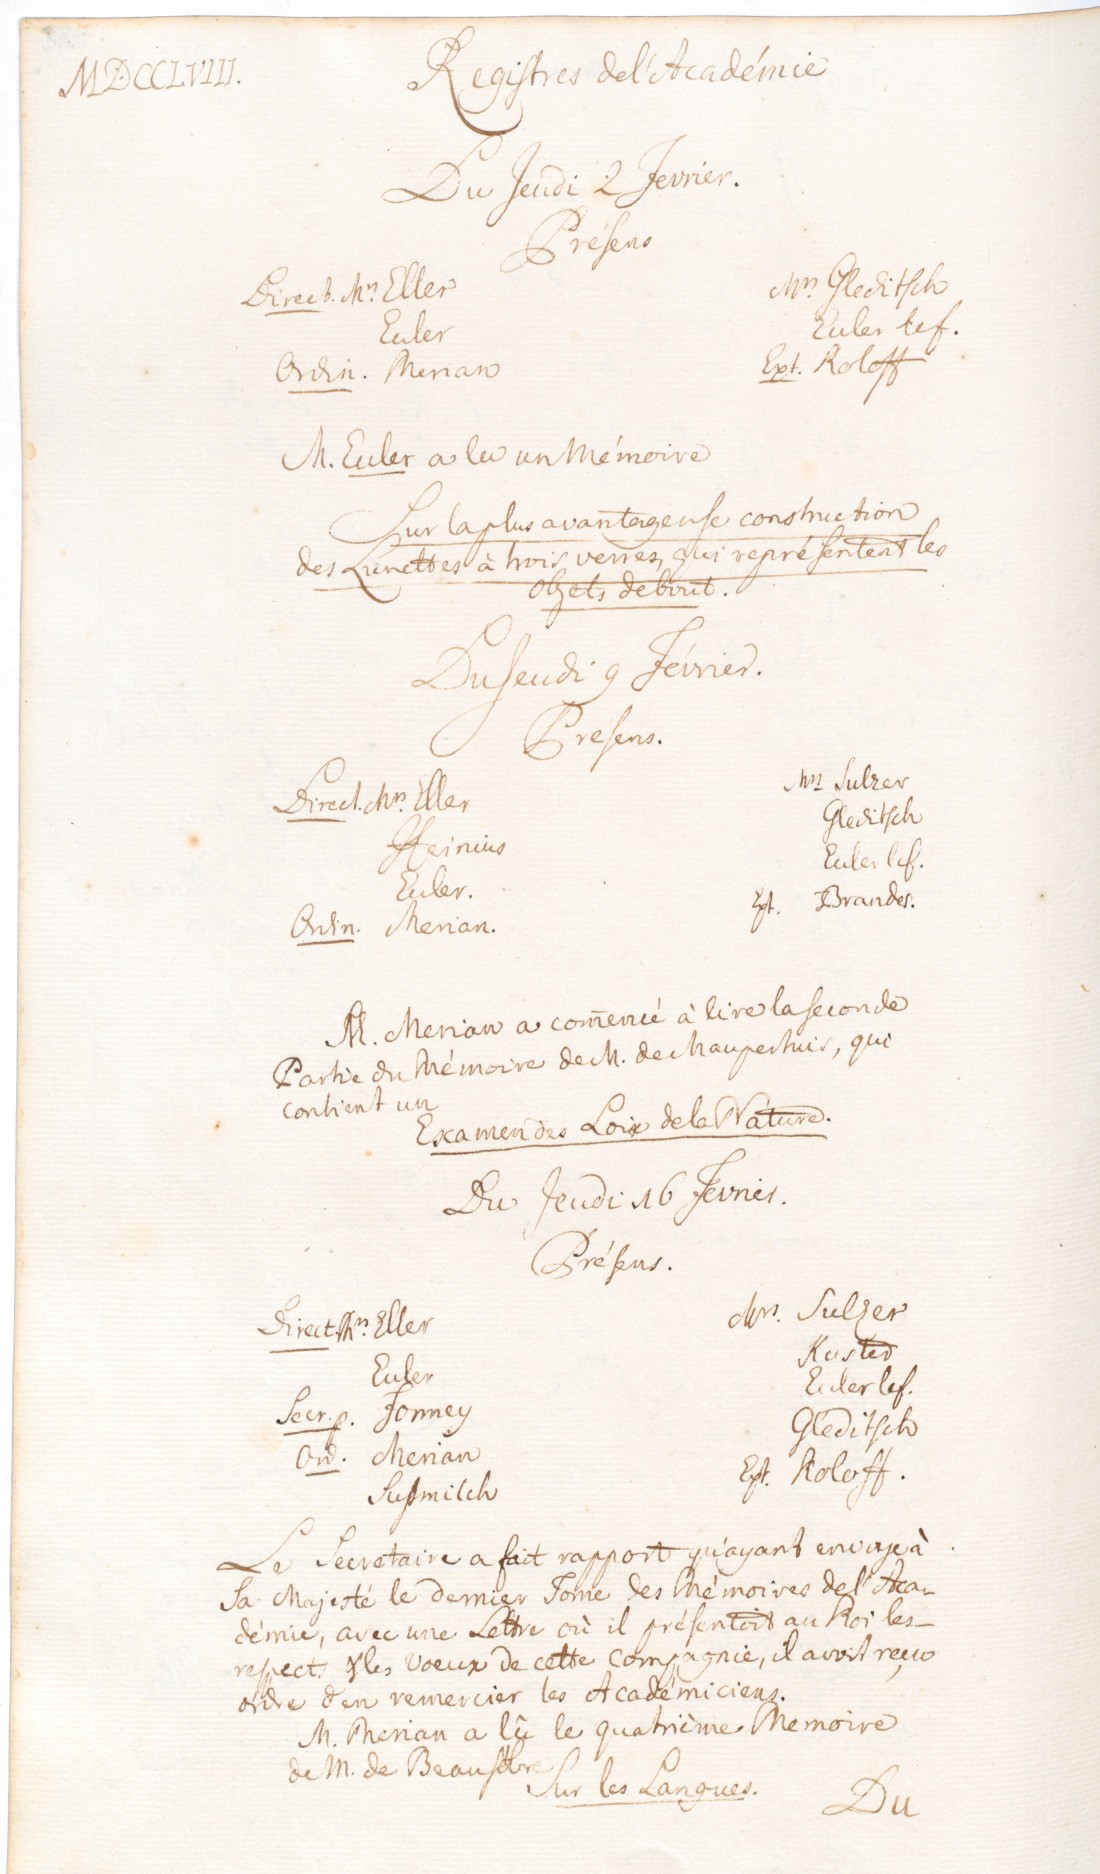 MDCCLVIII.
Registres de l'Académie
Du Jeudi 2 Fevrier.
Présens
Direct. Mrs. Eller
Euler
Ordin. Merian
Mrs. Gleditsch
Euler le f.
Ext. Roloff
M. Euler a lu un Mémoire
Sur la plus avantageuse construction
des Lunettes à trois verres, qui représentent les
objets debout.
Du Jeudi 9 Février.
Présens.
Direct. Mrs. Eller
Heinius
Euler.
Ordin. Merian.
Mrs. Sulzer
Gleditsch
Euler le f.
Ext. Brandes.
M. Merian a com̄encé à lire la seconde
Partie du Mémoire de M. de Maupertuis, qui
contient un
Examen des Loix de la Nature.
Du Jeudi 16 Fevrier.
Présens.
Direct. Mrs. Eller
Euler
Secr. p. Formey
Ord. Merian
Susmilch
Mrs. Sulzer
Kuster
Euler le f.
Gleditsch
Ext. Roloff.
Le Secretaire a fait rapport qu'ayant envoyé à
Sa Majesté le dernier Tome des Mémoires de l'Aca-
démie, avec une Lettre où il présentoit au Roi les
respects & les voeux de cette compagnie, il avoit reçu
ordre d'en remercier les Académiciens.
M. Merian a lû le quatrième Memoire
de M. de Beausobre
Sur les Langues.
Du